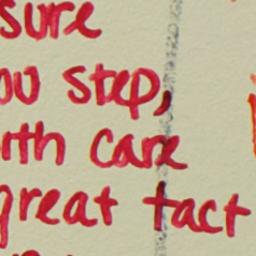 sure
ou step,
ith care
great tact